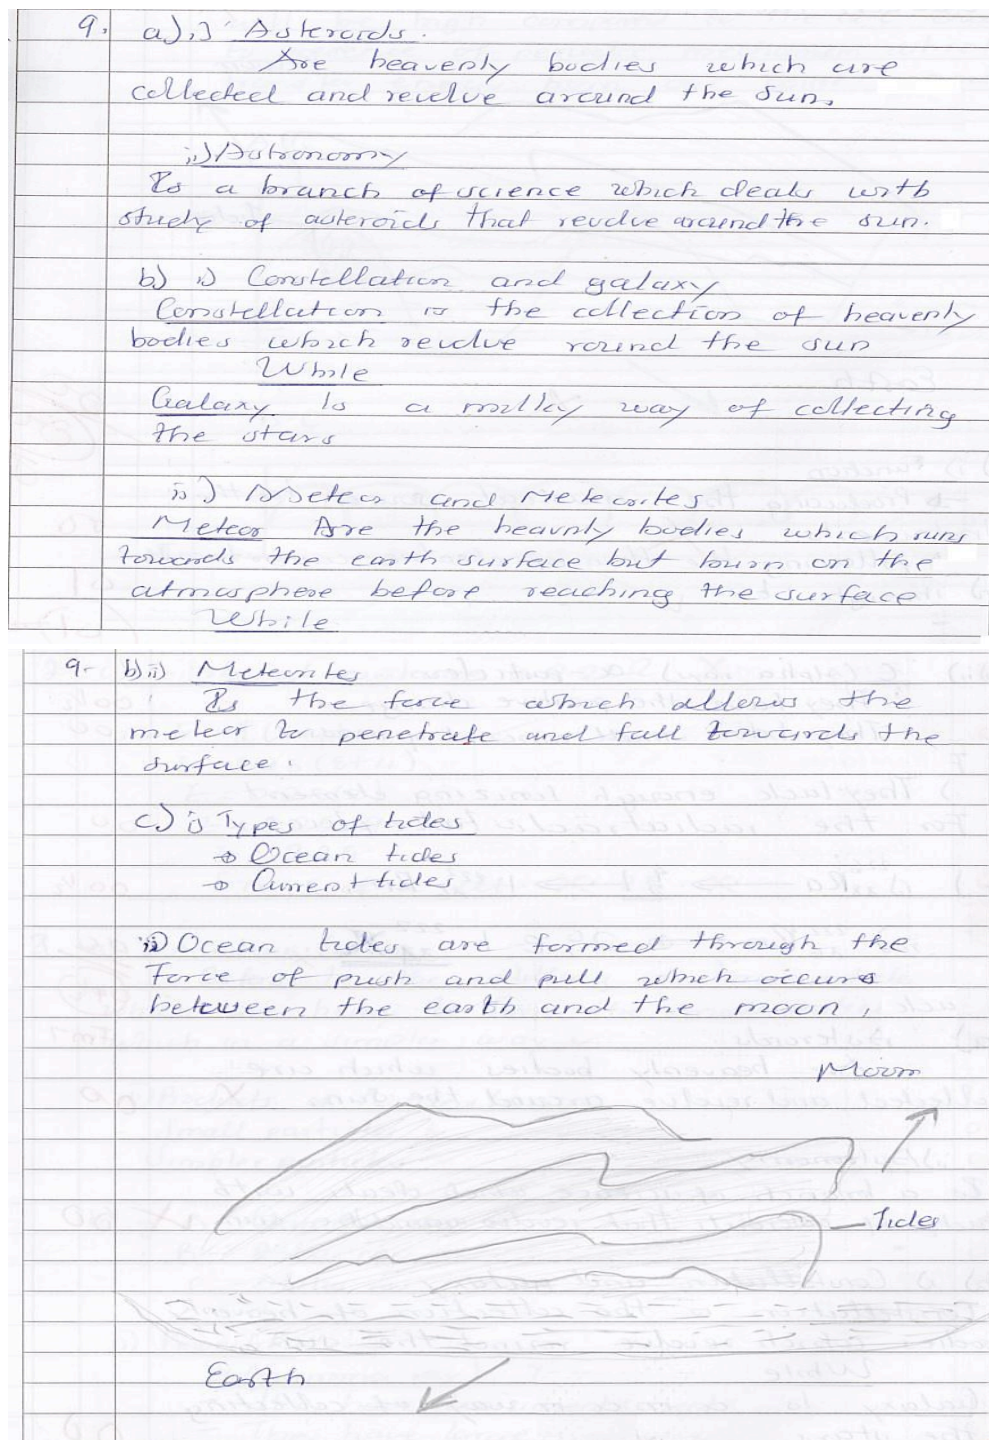 9. a) i) Asteroids.
Are heavenly bodies which are
collected and revolve around the sun.
ii) Astronomy
Is a branch of science which deals with
study of asteroids that revolve around the sun.
b) i) Constellation and galaxy
Constellation is the collection of heavenly
bodies which revolve round the sun
While
Galaxy Is a milky way of collecting
the stars
ii) Meteor and Meteorites
Meteor Are the heavnly bodies which runs
towards the earth surface but burn on the
atmosphere before reaching the surface
While
9- b) ii) Meteorites
Is the force which allows the
meteor to penetrate and fall towards the
surface.
c) i) Types of tides
→ Ocean tides
→ Current tides
ii) Ocean tides are formed through the
Force of push and pull which occurs
between the earth and the moon,
Moon
Tides
Earth